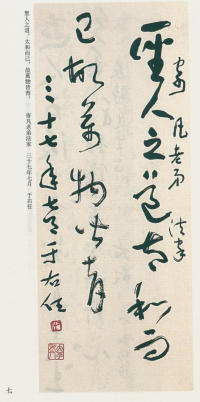 寄凡老弟 法家
聖人之道太和而
已故萬物皆育
三十七年七月 于右任
聖人之道，太和而已，故萬物皆育。 寄凡老弟法家 三十七年七月 于右任
七